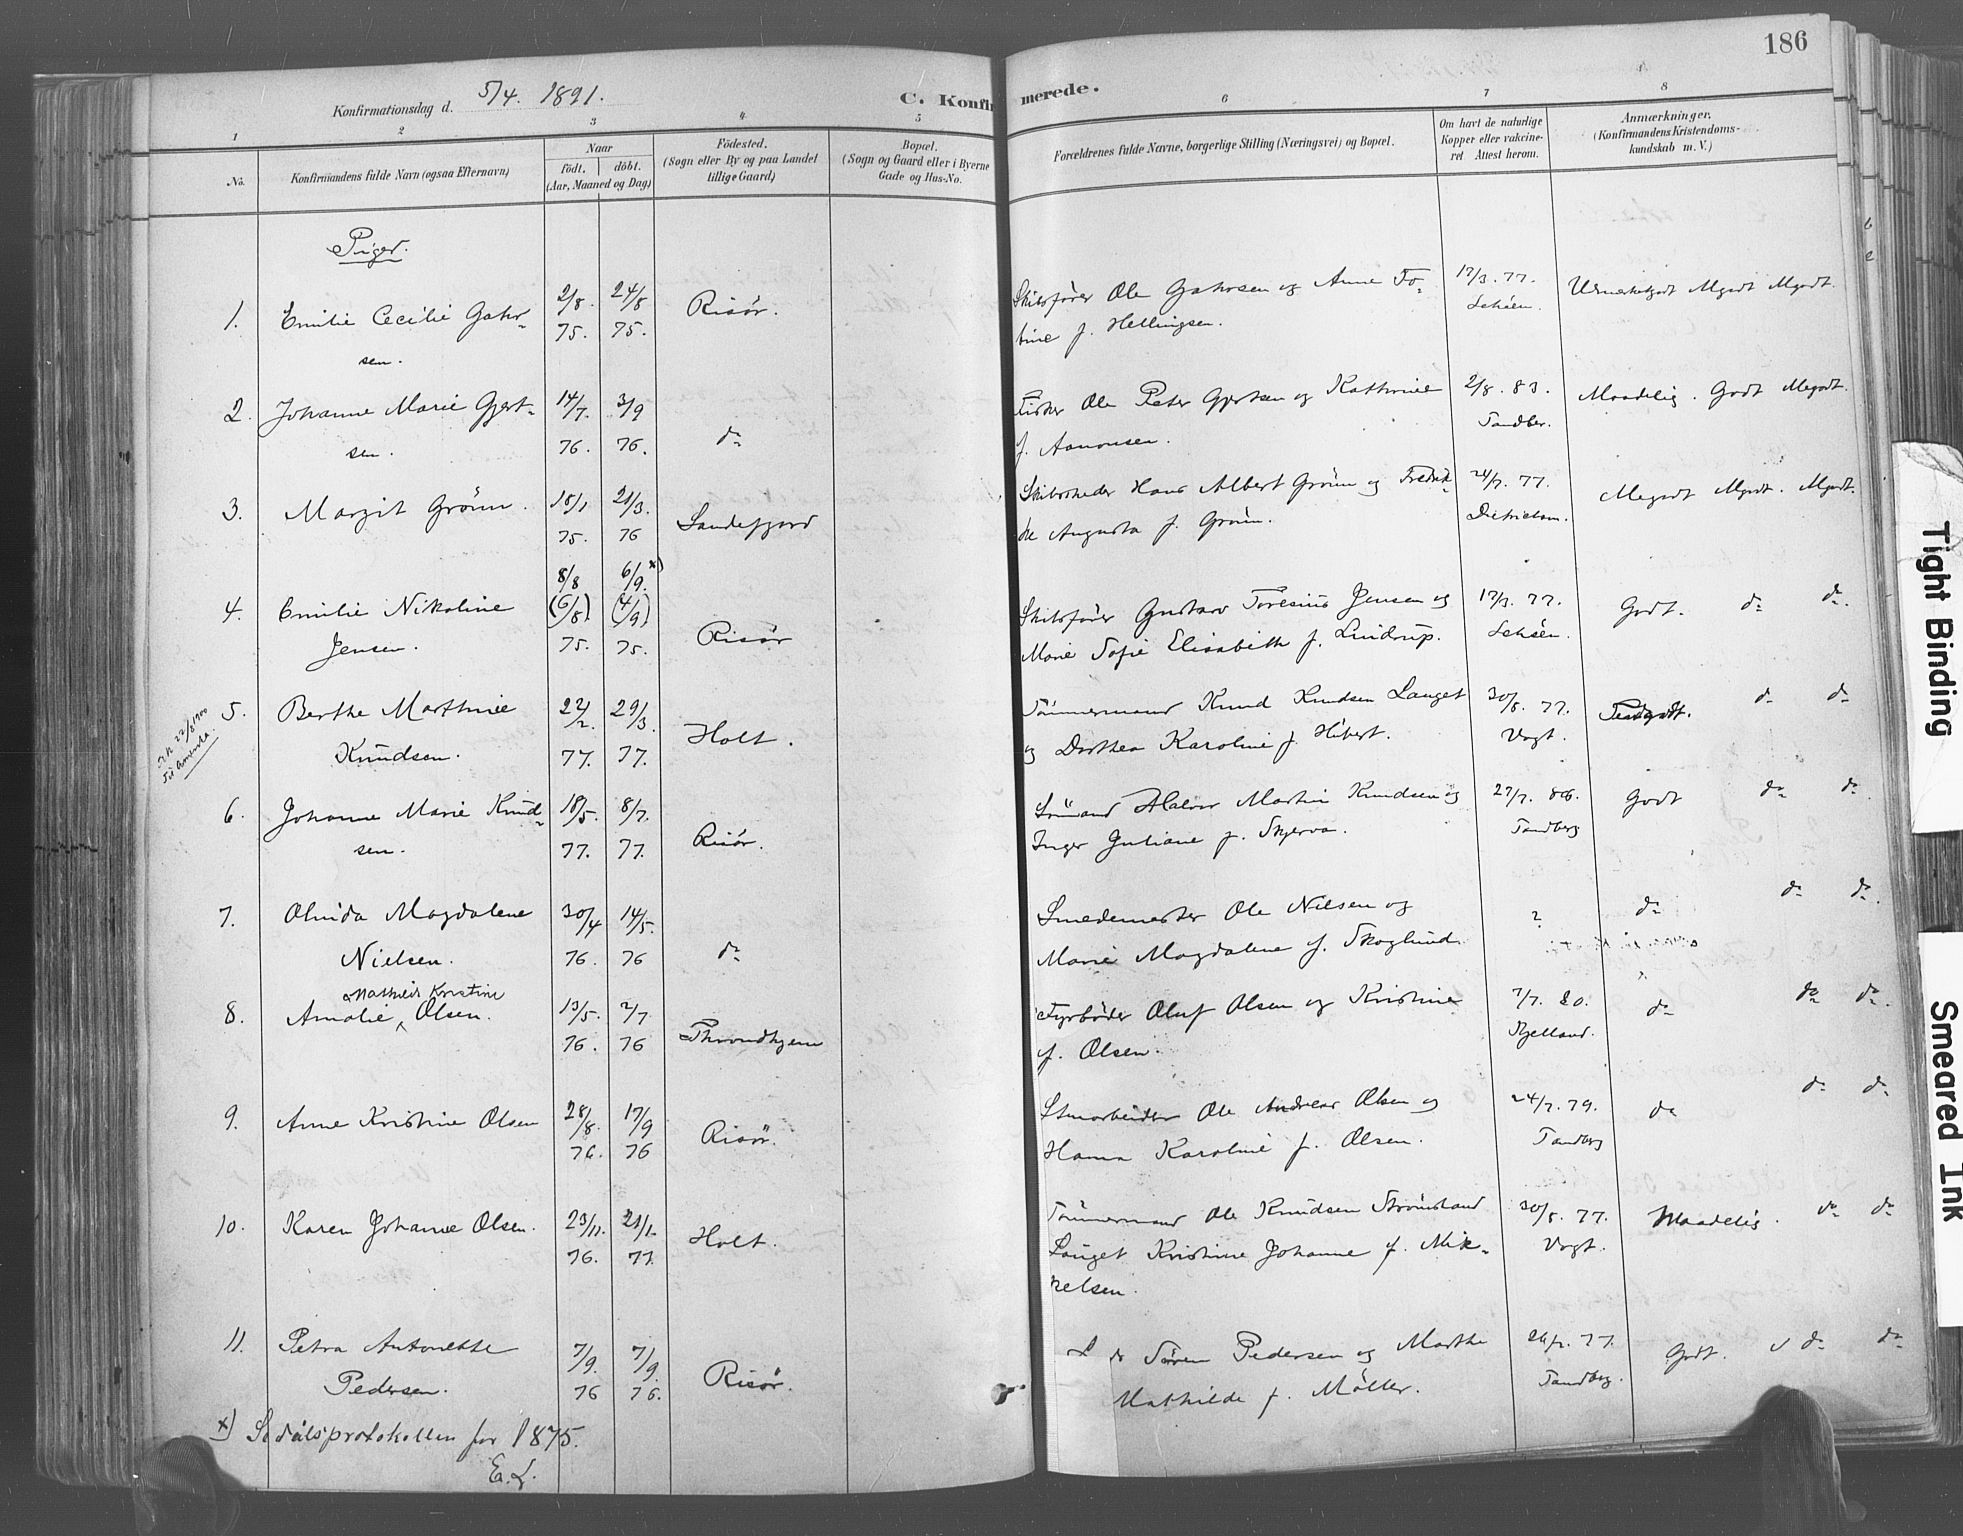 186
Konfirmationsdag d. 5/4. 1891.
C. Konfirmerede.
1 2 3 4 5 6 7 8
No.
Konfirmandens fulde Navn (ogsaa Efternavn)
Naar
födt. döbt.
(Aar, Maaned og Dag)
Födested.
(Sogn eller By og paa Landet
tillige Gaard)
Bopæl.
(Sogn og Gaard eller i Byerne
Gade og Hus-No.
Forældrenes fulde Navne, borgerlige Stilling (Næringsvei) og Bopæl.
Om havt de naturlige
Kopper eller vakcine-
ret Attest herom.
Anmærkninger.
(Konfirmandens Kristendoms-
kundskab m. V.)
Piger.
1. Emilie Cecilie Gahr-
sen.
2/8. 75. 24/8 75.
Risör.
Skibsfører Ole Gahrsen og Anne To-
bine f. Hellingsen.
17/3. 77.
Mgodt Mgodt.
2. Johanne Marie Gjert-
sen.
14/7. 76. 3/9 76.
do
Fisker Ole Peter Gjertsen og Kathrine
f. Aanonsen.
2/8. 83.
Tandber.
Maadelig. Godt Megodt.
3. Margit Grönn.
18/1 75. 21/3. 76
Sandefjord
Skibsreder Hans Albert Grönn og Fredrik-
ke Augusta f. Grönn.
24/7. 77.
Dietrichson.
Megodt Mgodt. Mgodt.
4. Emilie Nikoline
Jensen.
8/8 (6/8) 75. 6/9. x) (4/9) 75.
Risör
Skibsfører Gustav Toresius Jensen og
Marie Sofie Elisabeth f. Lindrup.
17/3. 77.
Godt. do do.
5. Berthe Marthine
Knudsen.
22/2. 77. 29/3. 77.
Holt.
Tömmermand Knud Knudsen Lauget
og Dorthea Karoline f. Hibert.
30/8. 77.
Vogt.
do do
22/8 1900
til Amerika.
6. Johanne Marie Knud-
sen.
18/5. 77. 8/7. 77.
Risör.
Sömand Halvor Martin Knudsen og
Inger Juliane f. Skjerva.
27/7. 86.
Tandberg
Godt do do.
7. Olinda Magdalene
Nielsen.
30/4 76. 14/5. 76
do
Smedemester Ole Nilsen og
Marie Magdalene f. Skoglund.
?
do do do.
8. Amalie Mathilde Kristine Olsen.
13/5. 76. 2/7 76
Throndhjem
Fyrböder Oluf Olsen og Kristine
f. Olsen.
7/7. 80.
Kjelland.
do do do.
9. Anne Kristine Olsen
28/8. 76. 17/9 76
Risör.
Stenarbeider Ole Andreas Olsen og
Hanna Karoline f. Olsen.
24/7. 79.
Tandberg
do do do.
10. Karen Johanne Olsen.
23/11. 76. 21/1. 77.
Holt.
Tömmermand Ole Knudsen Strömsland
Lauget Kristine Johanne f. Mik-
kelsen.
30/8. 77.
Vogt.
Maadelig. do do.
11. Petra Antonette
Pedersen.
7/9. 76 7/9. 76.
Risör.
Sören Pedersen og Marthe
Mathilde f. Möller.
77.
Tandberg.
Godt. do do.
x) for 1875.
E. L.
Tight Binding
Smeared Ink